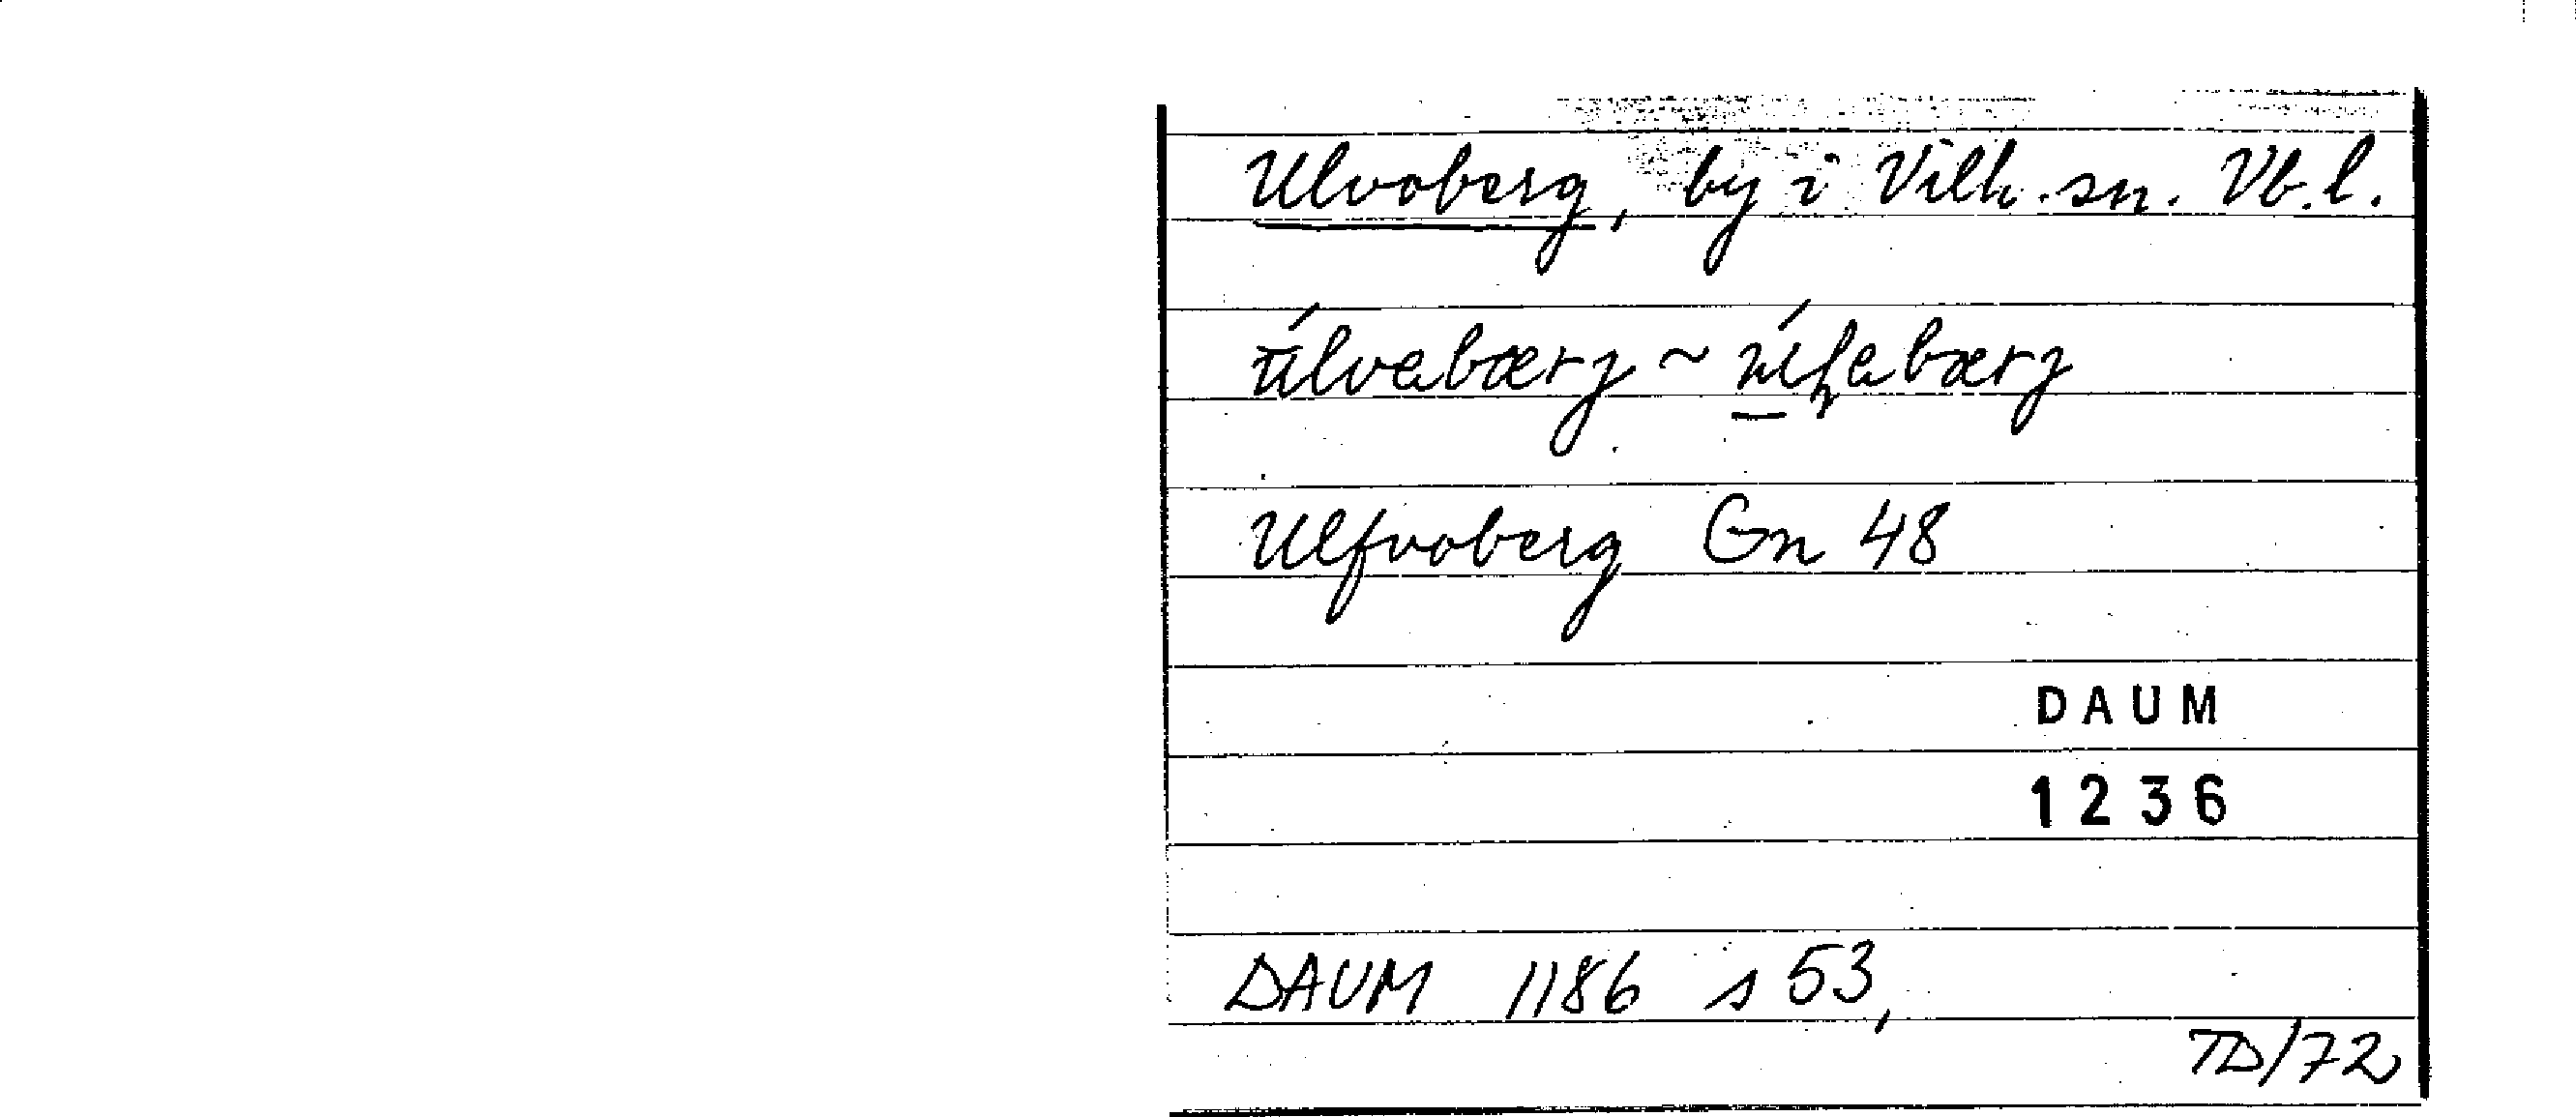 Ulvoberg, by i Vilh. sn. Vb.l.
Ulfvoberg Gn 48
DAUM
1236
DAUM 1186 s 53,
TD/72